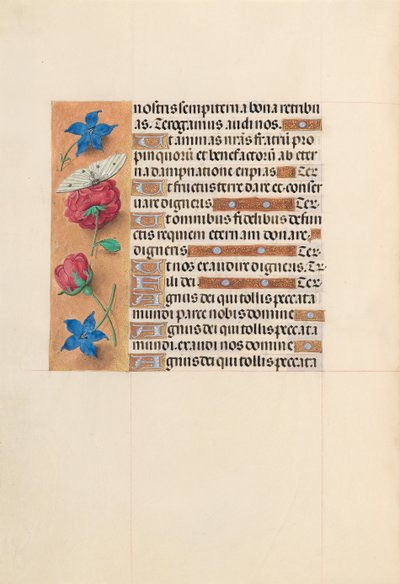 nostris sempiterna bona retribu
as. Te rogamus audi nos.
Ut animas n̄ras fratrū pro
pinquorū et benefactorū ab eter
na dampnatione eripias Te r
Ut fructus terre dare et conser
uare digneris. Te r.
Ut omnibus fidelibus defun
ctis requiem eternam donare.
digneris Te r.
Ut nos exaudire digneris. Te r.
Fili dei. Te r.
Agnus dei qui tollis peccata
mundi parce nobis domine
Agnus dei qui tollis peccata
mundi. exaudi nos domine
Agnus dei qui tollis peccata